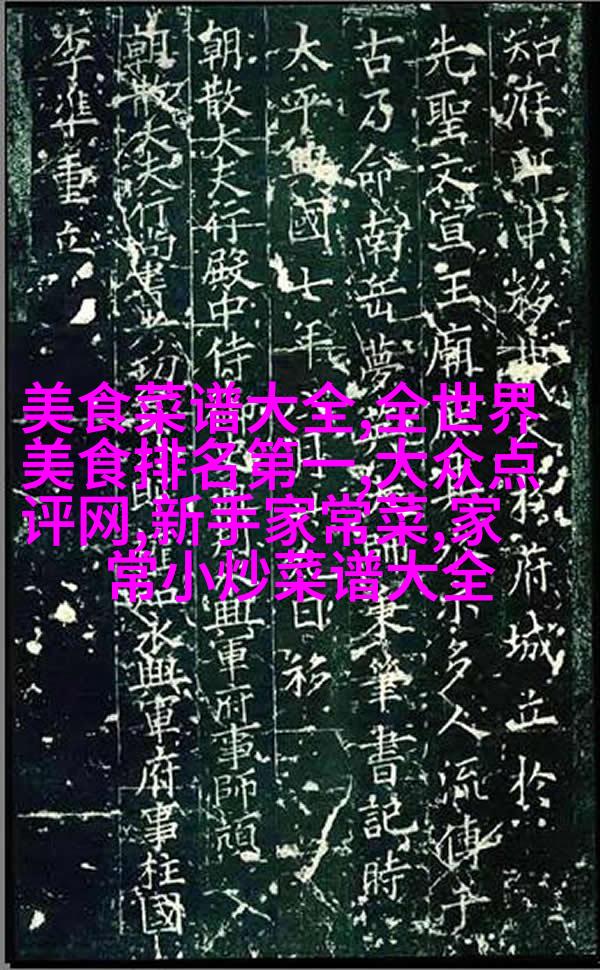 知府申移府城立於
先聖文宣王廟多人流傳于
古乃命南岳夢秉筆書記時
太平興國七年日移
朝散大夫行殿中侍興軍府事師頏
朝散大夫行尚書永興軍府事柱國
李準重立
美食菜谱大全,全世界
美食排名第一,大众点
评网,新手家常菜,家
常小炒菜谱大全